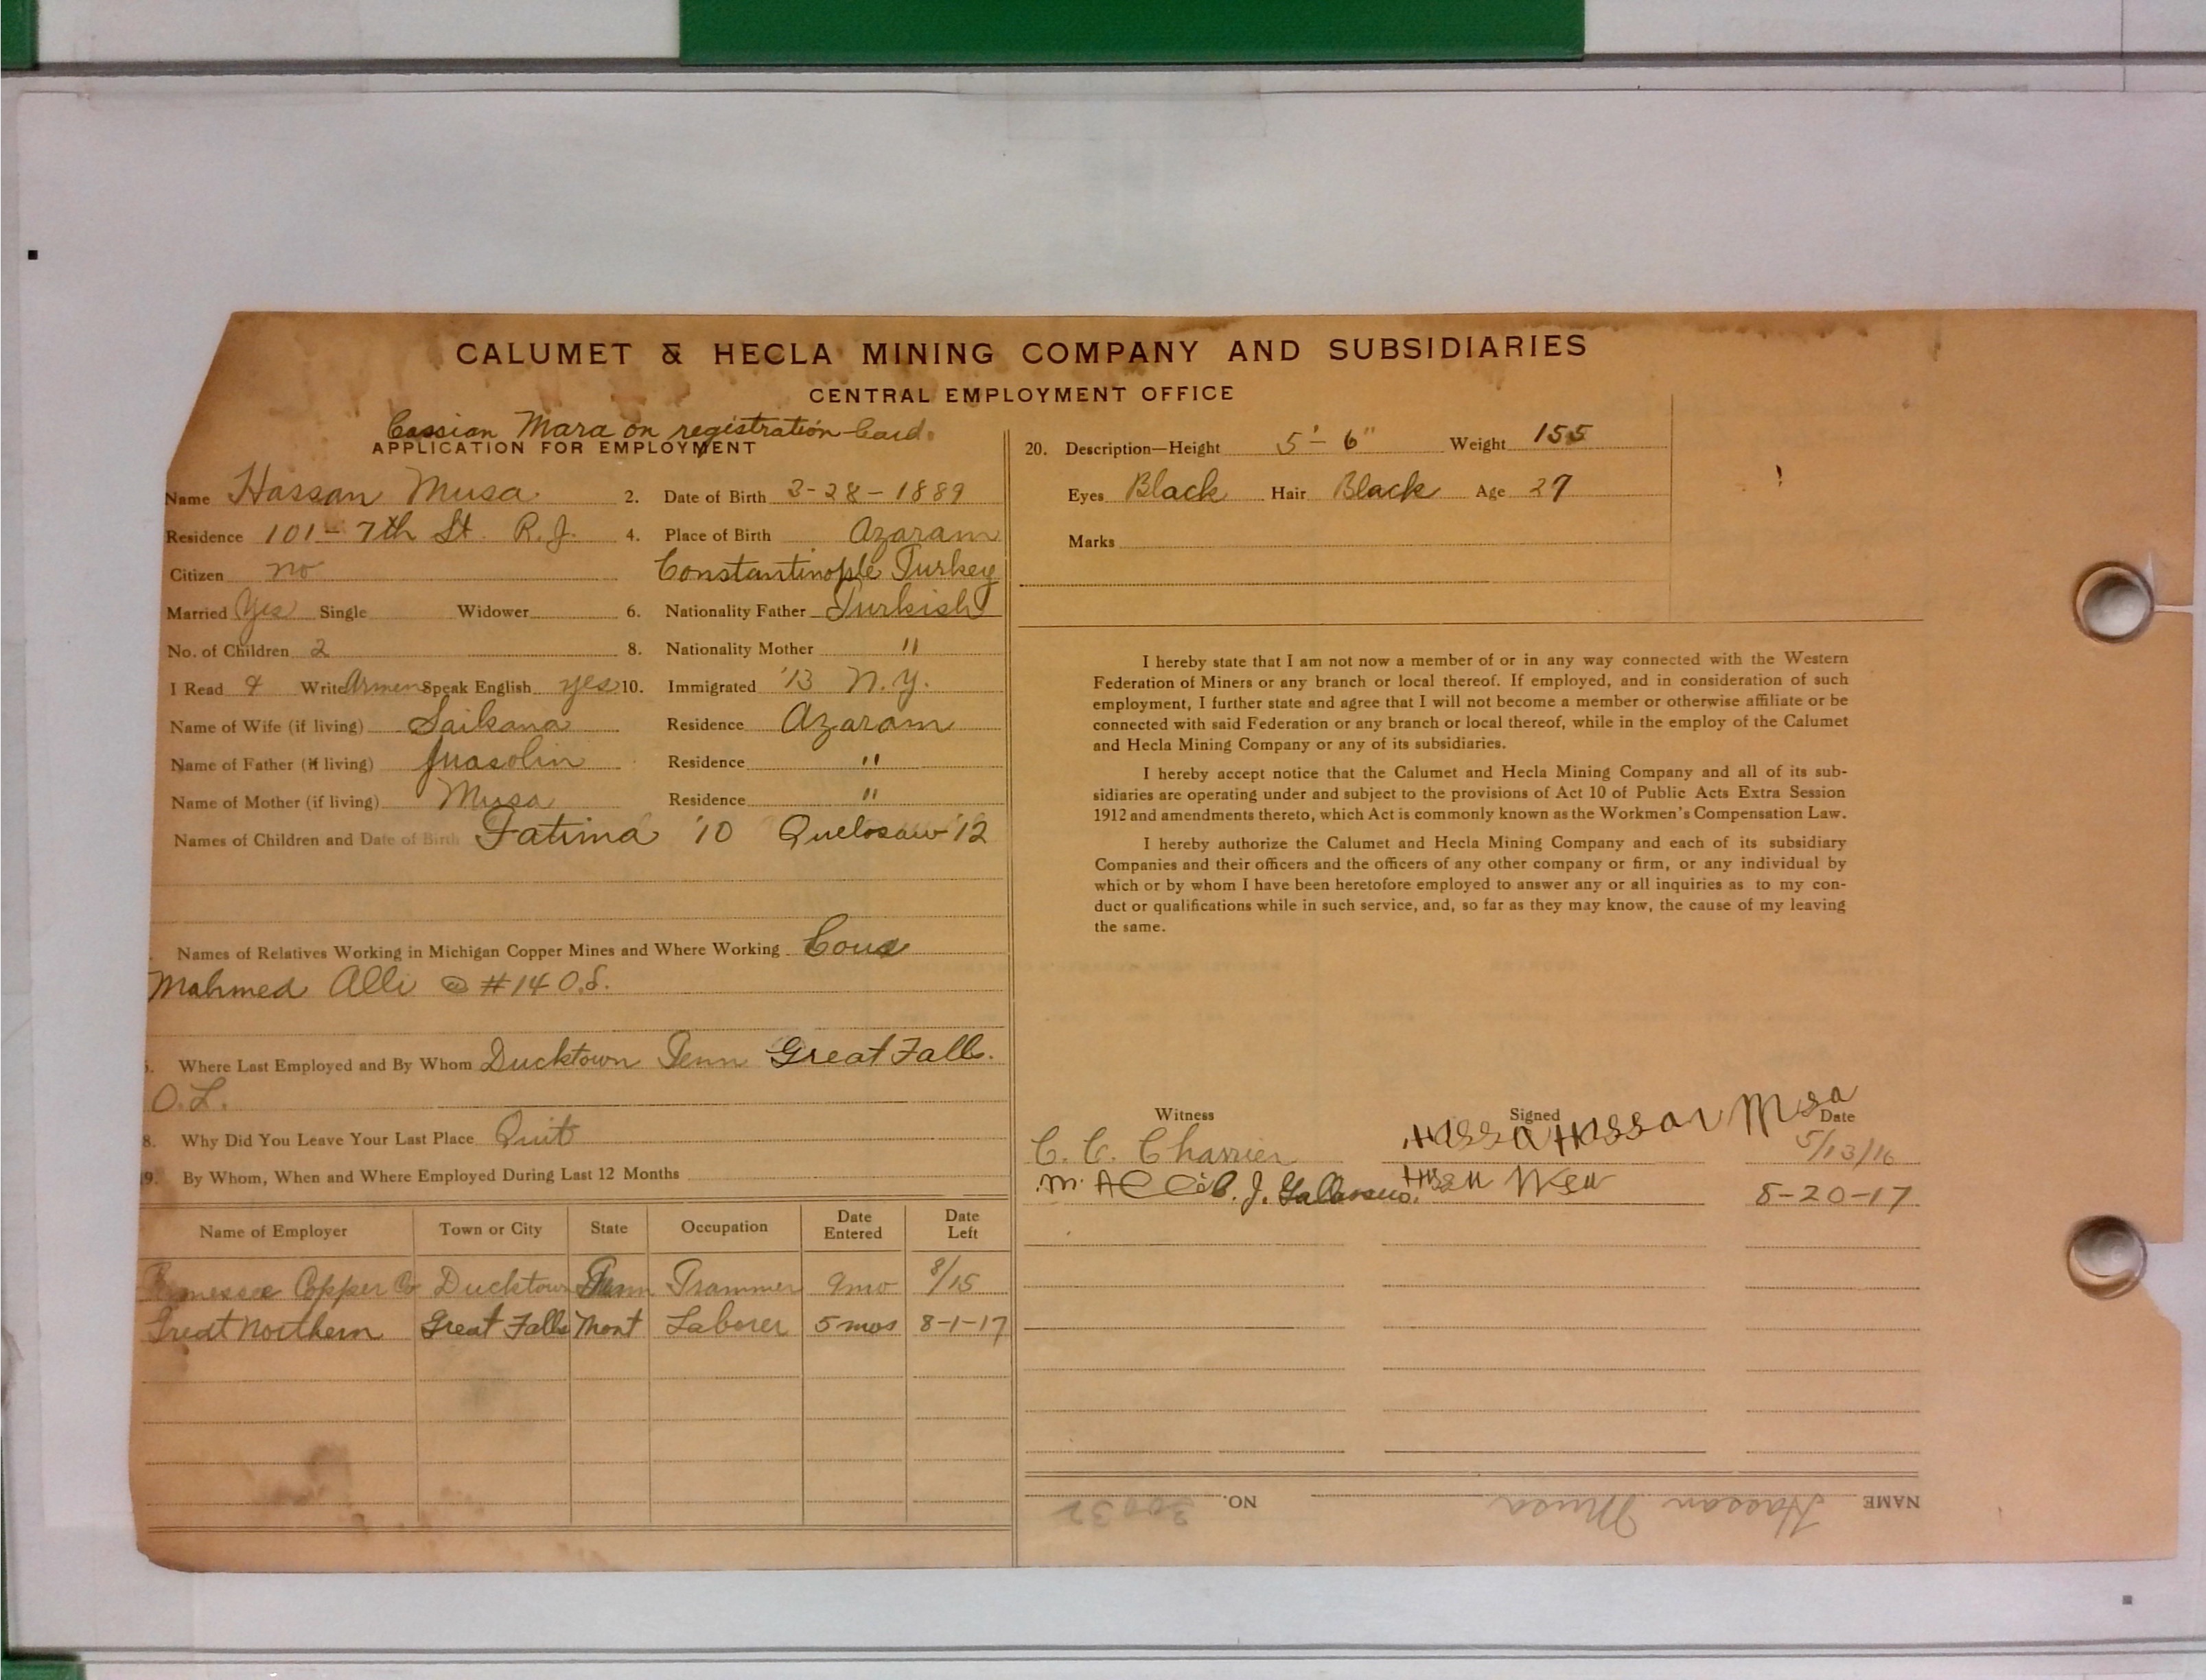 CALUMET & HECLA MINING COMPANY AND SUBSIDIARIES
CENTRAL EMPLOYMENT OFFICE
Cassian Mara on registration Card.
APPLICATION FOR EMPLOYMENT
Name Hassan Musa
2. Date of Birth 3-28-1889
Residence 101-7th St. R.J.
4. Place of Birth Azaram
Citizen no
Constantinople Turkey
Married Yes Single Widower
6. Nationality Father Turkish
No. of Children 2
8. Nationality Mother "
I Read & Write Armen Speak English yes
10. Immigrated '13 N.Y.
Name of Wife (if living) Saikana Residence Azaram
Name of Father (if living) Juasolin Residence "
Name of Mother (if living) Musa Residence "
Names of Children and Date of Birth Fatima '10 Quelosaw '12
Names of Relatives Working in Michigan Copper Mines and Where Working Cous
Mahmed Alli @ #14 O.S.
Where Last Employed and By Whom Ducktown Tenn Great Falls.
O.L.
8. Why Did You Leave Your Last Place Quit
19. By Whom, When and Where Employed During Last 12 Months
Name of Employer Town or City State Occupation Date Entered Date Left
Tennessee Copper Co Ducktown Tenn Trammer 9mo 8/15
Great Northern Great Falls Mont Laborer 5 mos 8-1-17
20. Description—Height 5'-6" Weight 155
Eyes Black Hair Black Age 27
Marks
I hereby state that I am not now a member of or in any way connected with the Western
Federation of Miners or any branch or local thereof. If employed, and in consideration of such
employment, I further state and agree that I will not become a member or otherwise affiliate or be
connected with said Federation or any branch or local thereof, while in the employ of the Calumet
and Hecla Mining Company or any of its subsidiaries.
I hereby accept notice that the Calumet and Hecla Mining Company and all of its sub-
sidiaries are operating under and subject to the provisions of Act 10 of Public Acts Extra Session
1912 and amendments thereto, which Act is commonly known as the Workmen's Compensation Law.
I hereby authorize the Calumet and Hecla Mining Company and each of its subsidiary
Companies and their officers and the officers of any other company or firm, or any individual by
which or by whom I have been heretofore employed to answer any or all inquiries as to my con-
duct or qualifications while in such service, and, so far as they may know, the cause of my leaving
the same.
Witness Signed Date
C. C. Charrier Hassan Msa 5/13/16
M. Alli 8-20-17
NAME Hassan Musa NO. 30032